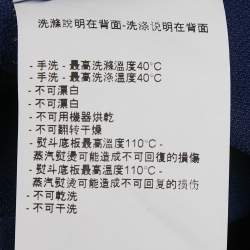 洗滌說明在背面-洗涤说明在背面
- 手洗 - 最高洗滌溫度40°C
- 手洗 - 最高洗涤温度40°C
- 不可漂白
- 不可漂白
- 不可用機器烘乾
- 不可翻转干燥
- 熨斗底板最高溫度110°C -
蒸汽熨燙可能造成不可回復的損傷
- 熨斗底板最高温度110°C -
蒸汽熨烫可能造成不可回复的损伤
- 不可乾洗
- 不可干洗